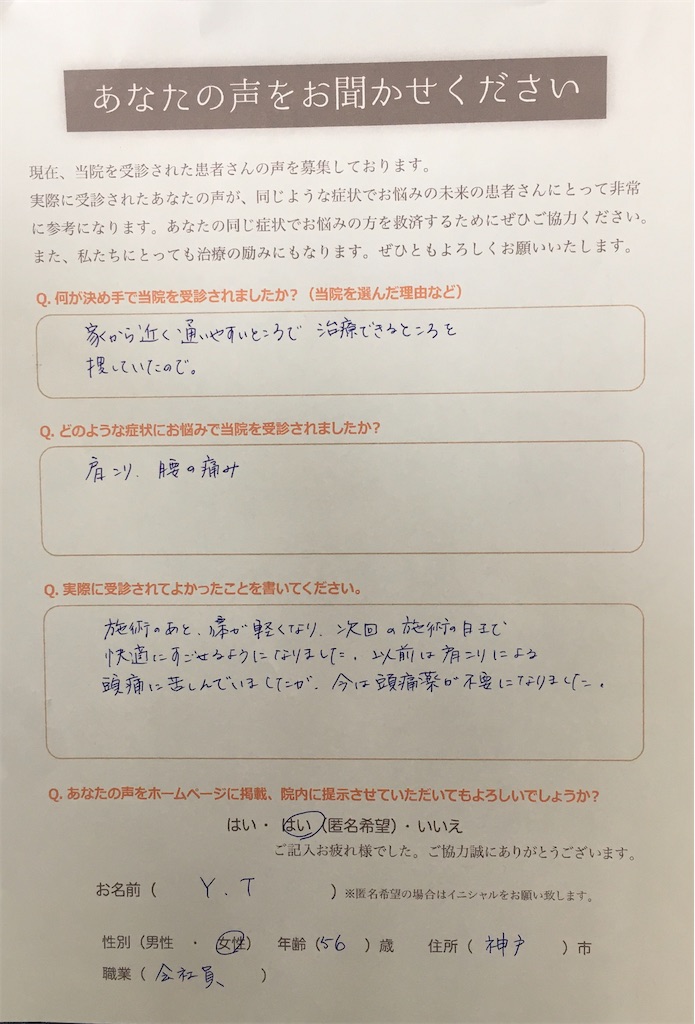 あなたの声をお聞かせください
現在、当院を受診された患者さんの声を募集しております。
実際に受診されたあなたの声が、同じような症状でお悩みの未来の患者さんにとって非常
に参考になります。あなたの同じ症状でお悩みの方を救済するためにぜひご協力ください。
また、私たちにとっても治療の励みにもなります。ぜひともよろしくお願いいたします。
Q. 何が決め手で当院を受診されましたか？（当院を選んだ理由など）
家から近く通いやすいところで 治療できるところを
捜していたので。
Q. どのような症状にお悩みで当院を受診されましたか？
肩こり、腰の痛み
Q. 実際に受診されてよかったことを書いてください。
施術のあと、痛が軽くなり、次回の施術の日まで
快適にすごせるようになりました。以前は肩こりによる
頭痛に苦しんでいましたが、今は頭痛薬が不要になりました。
Q. あなたの声をホームページに掲載、院内に提示させていただいてもよろしいでしょうか？
はい・ はい（匿名希望）・いいえ
ご記入お疲れ様でした。ご協力誠にありがとうございます。
お名前（ Y.T ）※匿名希望の場合はイニシャルをお願い致します。
性別（男性 ・ 女性） 年齢（56 ）歳 住所（ 神戸 ）市
職業（ 会社員 ）